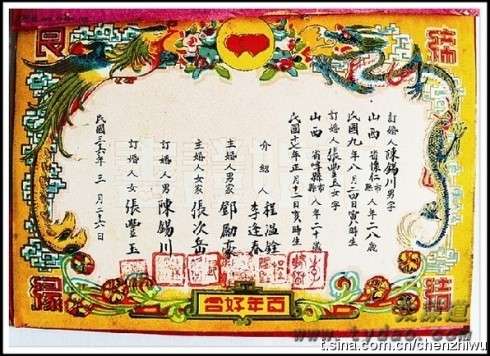 締結良緣
訂婚人陳錫川男字
山西省懷仁縣人年二八歲
民國九年八月二四日寅時生
訂婚人張豐玉女字
山西省崞縣人年二十歲
民國十七年正月十二日亥時生
介紹人
程溫銓
李逢春
主婚人男家鄧勵豪
主婚人女家張次岳
訂婚人男陳錫川
訂婚人女張豐玉
民國三六年三月二六日
百年好合
t.sina.com.cn/chenzhiwu